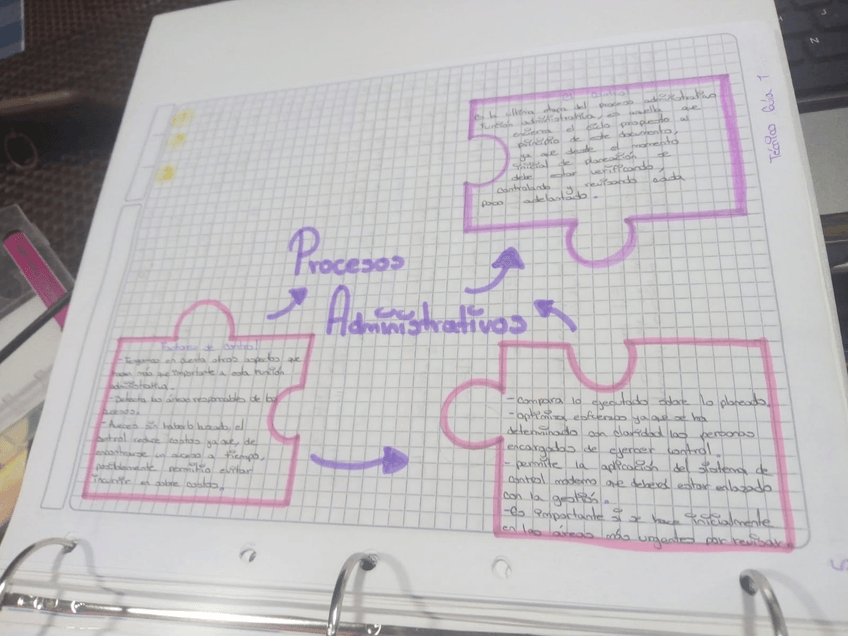 Control
Es la última etapa del proceso administrativo
Función administrativa, es aquella que
encierra el ciclo propuesto al
principio de este documento,
ya que desde el momento
inicial de planeación se
debe estar verificando,
controlando y revisando cada
paso adelantado.
Técnico
Procesos
Administrativos
Factores de control
- Tengamos en cuenta otros aspectos que
hacen más importante a esta función
administrativa.
- Detecta las áreas responsables de los
- Aveces sin haberlo buscado, el
control reduce costos ya que, de
encontrarse un a tiempo,
posiblemente permitió evitar
incurrir en sobre costos.
- compara lo ejecutado sobre lo planeado.
- optimiza esfuerzos ya que se ha
determinado con claridad las personas
encargadas de ejercer control.
- permite la aplicación del sistema de
control moderno que deberá estar enlazado
con la gestión.
- Es importante si se hace inicialmente
en las áreas más urgentes por revisar.